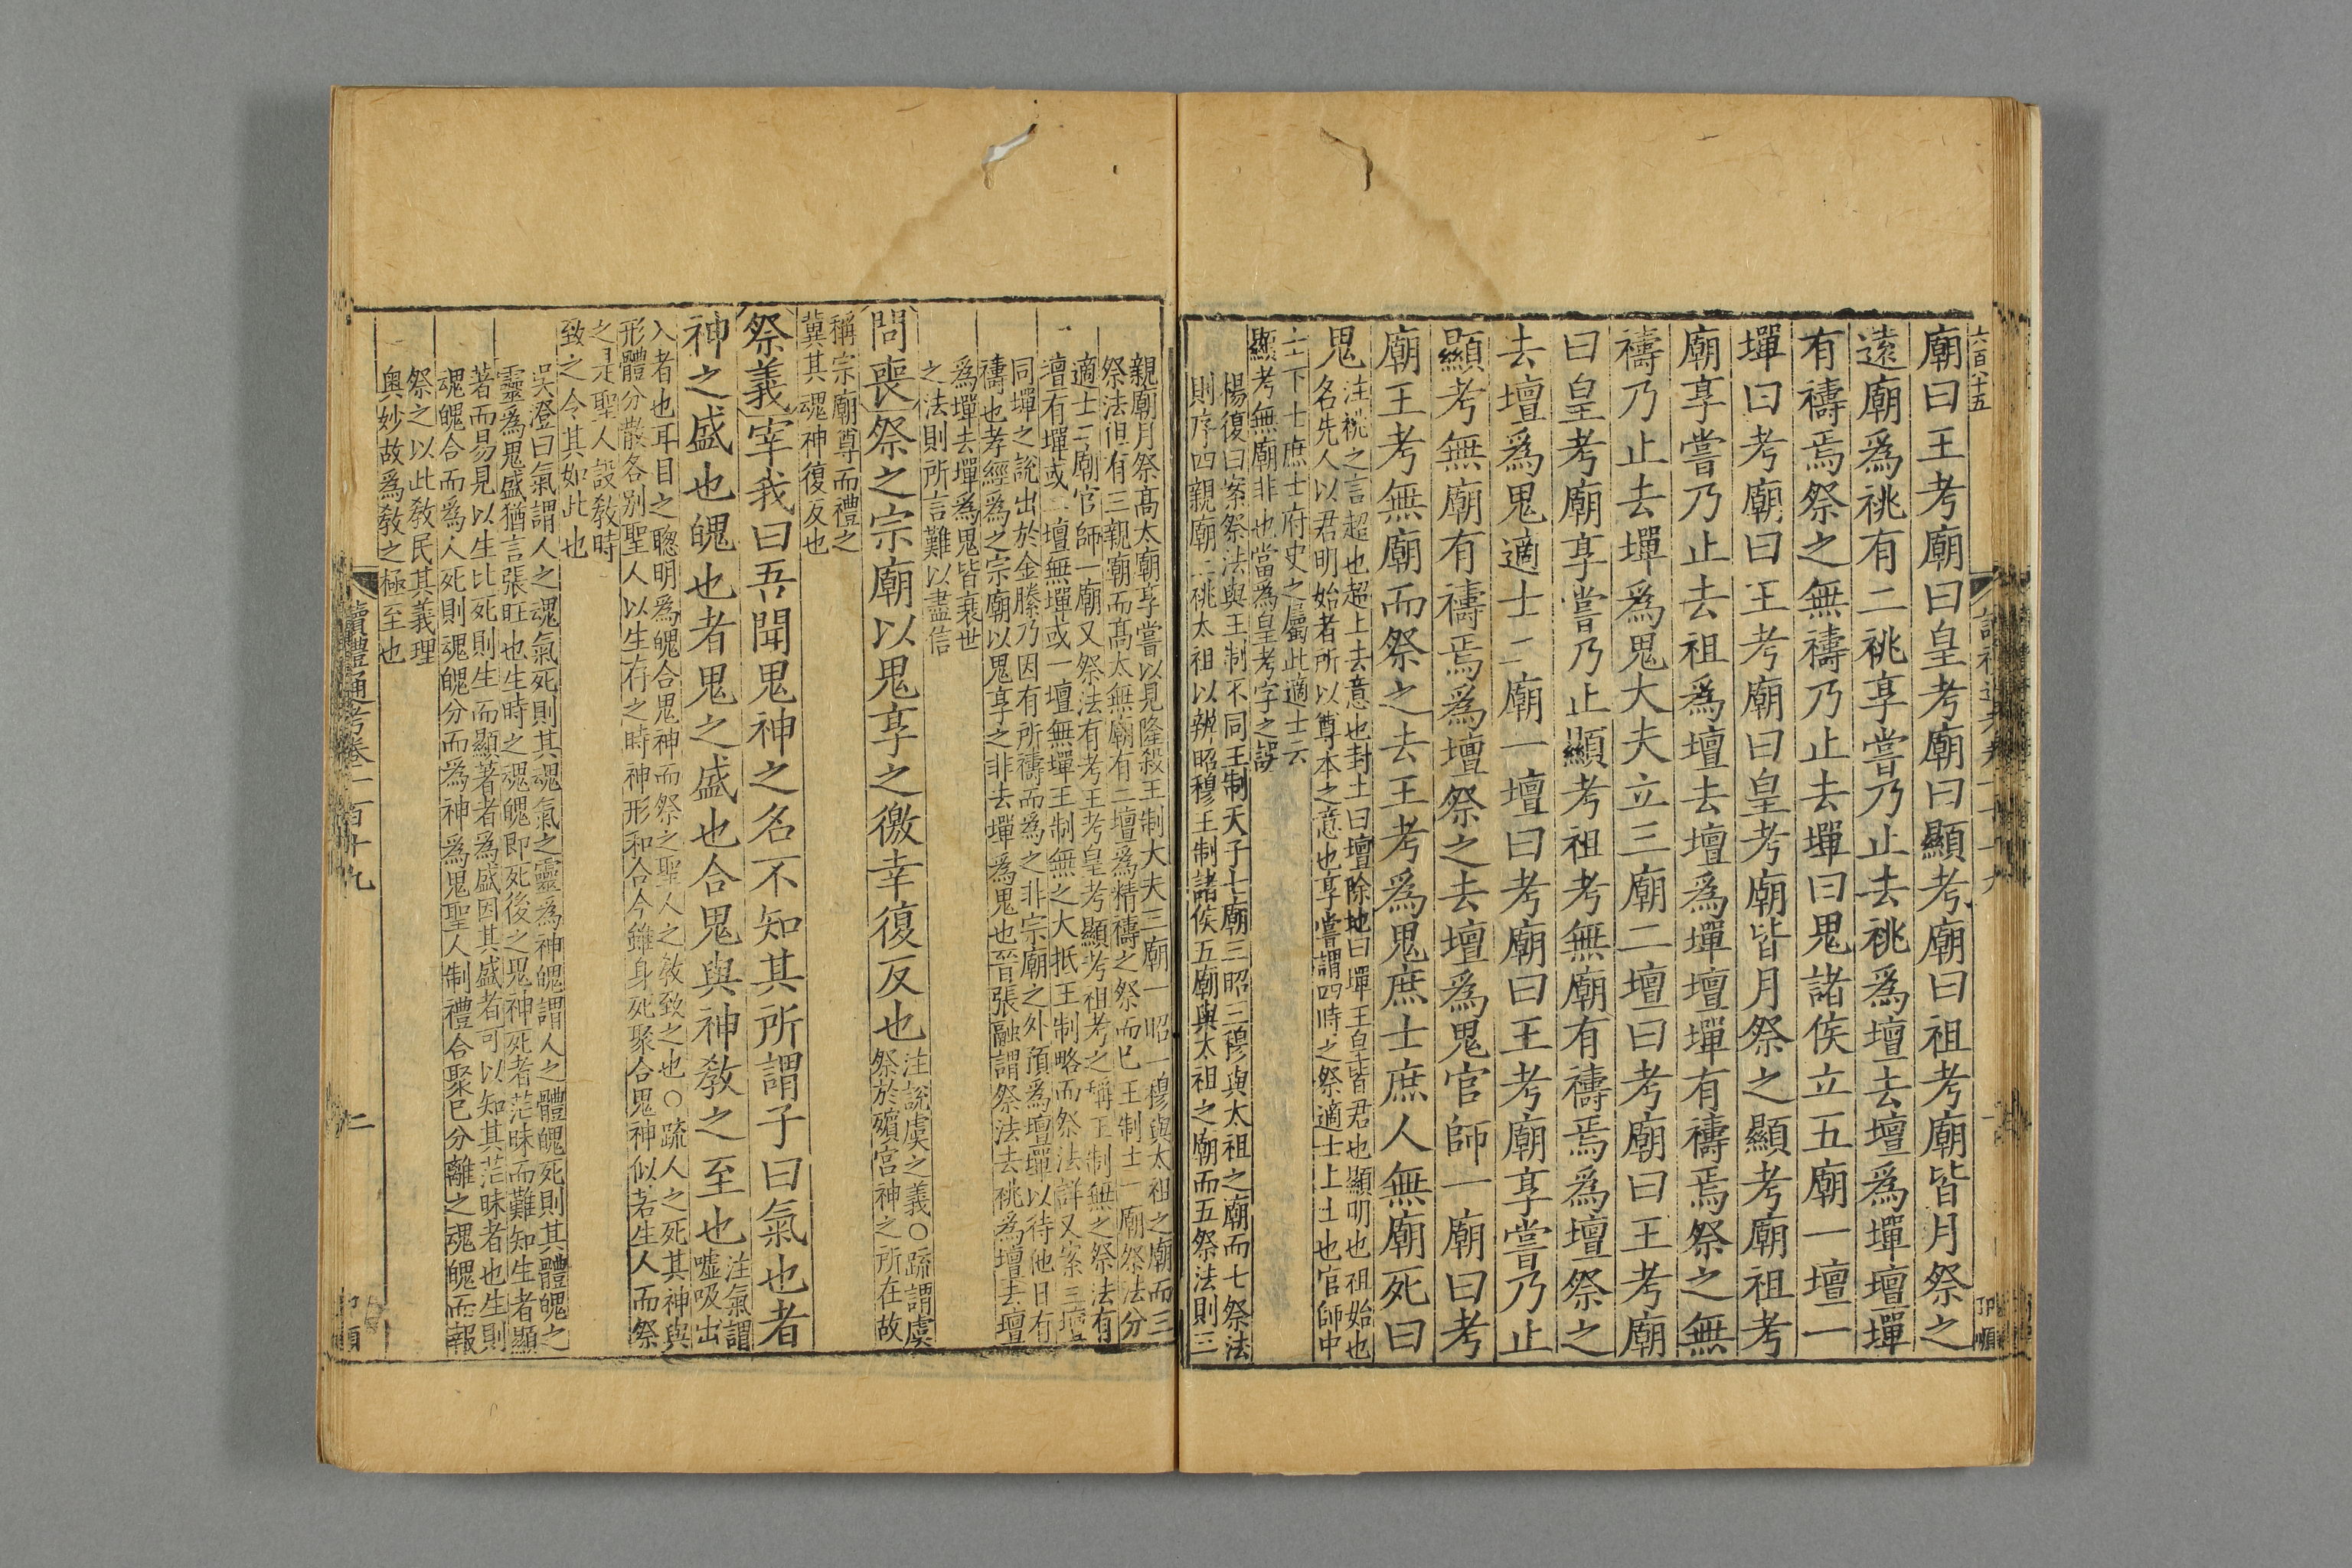 六百八十五
廟曰王考廟曰皇考廟曰顯考廟曰祖考廟皆月祭之
遠廟爲祧有二祧享嘗乃止去祧爲壇去壇爲墠壇墠
有禱焉祭之無禱乃止去墠曰鬼諸侯立五廟一壇一
墠曰考廟曰王考廟曰皇考廟皆月祭之顯考廟祖考
廟享嘗乃止去祖爲壇去壇爲墠壇墠有禱焉祭之無
禱乃止去墠爲鬼大夫立三廟二壇曰考廟曰王考廟
曰皇考廟享嘗乃止顯考祖考無廟有禱焉爲壇祭之
去壇爲鬼適士二廟一壇曰考廟曰王考廟享嘗乃止
顯考無廟有禱焉爲壇祭之去壇爲鬼官師一廟曰考
廟王考無廟而祭之去王考爲鬼庶士庶人無廟死曰
鬼
注祧之言超也超上去意也封土曰壇除地曰墠王皇皆君也顯明也祖始也
名先人以君明始者所以尊本之意也享嘗謂四時之祭適士上士也官師中
士下士庶士府史之屬此適士云
顯考無廟非也當爲皇考字之誤
楊復曰案祭法與王制不同王制天子七廟三昭三穆與太祖之廟而七祭法
則序四親廟二祧太祖以辨昭穆王制諸侯五廟與太祖之廟而五祭法則三
親廟月祭高太廟享嘗以見隆殺王制大夫三廟一昭一穆與太祖之廟而三
祭法但有三親廟而高太無廟有二壇爲精禱之祭而已王制士一廟祭法分
適士二廟官師一廟又祭法有考王考皇考顯考祖考之稱王制無之祭法有
壇有墠或二壇無墠或一壇無墠王制無之大抵王制略而祭法詳又案三壇
同墠之說出於金縢乃因有所禱而爲之非宗廟之外預爲壇墠以待他日有
禱也孝經爲之宗廟以鬼享之非去墠爲鬼也晉張融謂祭法去祧爲壇去壇
爲墠去墠爲鬼皆衰世
之法則所言難以盡信
問喪祭之宗廟以鬼享之徼幸復反也
注說虞之義○疏謂虞
祭於殯宮神之所在故
稱宗廟尊而禮之
冀其魂神復反也
祭義宰我曰吾聞鬼神之名不知其所謂子曰氣也者
神之盛也魄也者鬼之盛也合鬼與神敎之至也
注氣謂
噓吸出
入者也耳目之聰明爲魄合鬼神而祭之聖人之敎致之也○疏人之死其神與
形體分散各别聖人以生存之時神形和合今雖身死聚合鬼神似若生人而祭
之是聖人設敎時
致之令其如此也
吳澄曰氣謂人之魂氣死則其魂氣之靈爲神魄謂人之體魄死則其體魄之
靈爲鬼盛猶言張旺也生時之魂魄即死後之鬼神死者茫昧而難知生者顯
著而易見以生比死則生而顯著者爲盛因其盛者可以知其茫昧者也生則
魂魄合而爲人死則魂魄分而爲神爲鬼聖人制禮合聚已分離之魂魄而報
祭之以此敎民其義理
奥妙故爲敎之極至也
讀禮通考卷一百十九
二